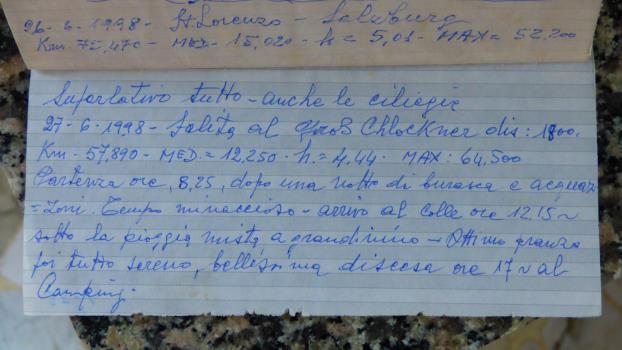 26-6-1998 - St Lorenzo - Salzburg
Km. 75,470 - MED - 15,020 - h = 5,01 - MAX = 52.200
Superlativo tutto - anche le ciliegie
27-6-1998 - Salita al Groß Chlockner dis: 1800.
Km - 57,890 - MED. = 12,250 - h. = 4.44 - MAX: 64,500
Partenza ore, 8,25, dopo una notte di burasca e acquaz
= zoni. Tempo minaccioso - arrivo al colle ore 12,15 ~
sotto la pioggia mista a grandinino - Ottimo pranzo
poi tutto sereno, bellissima discesa ore 17 ~ al
Camping.